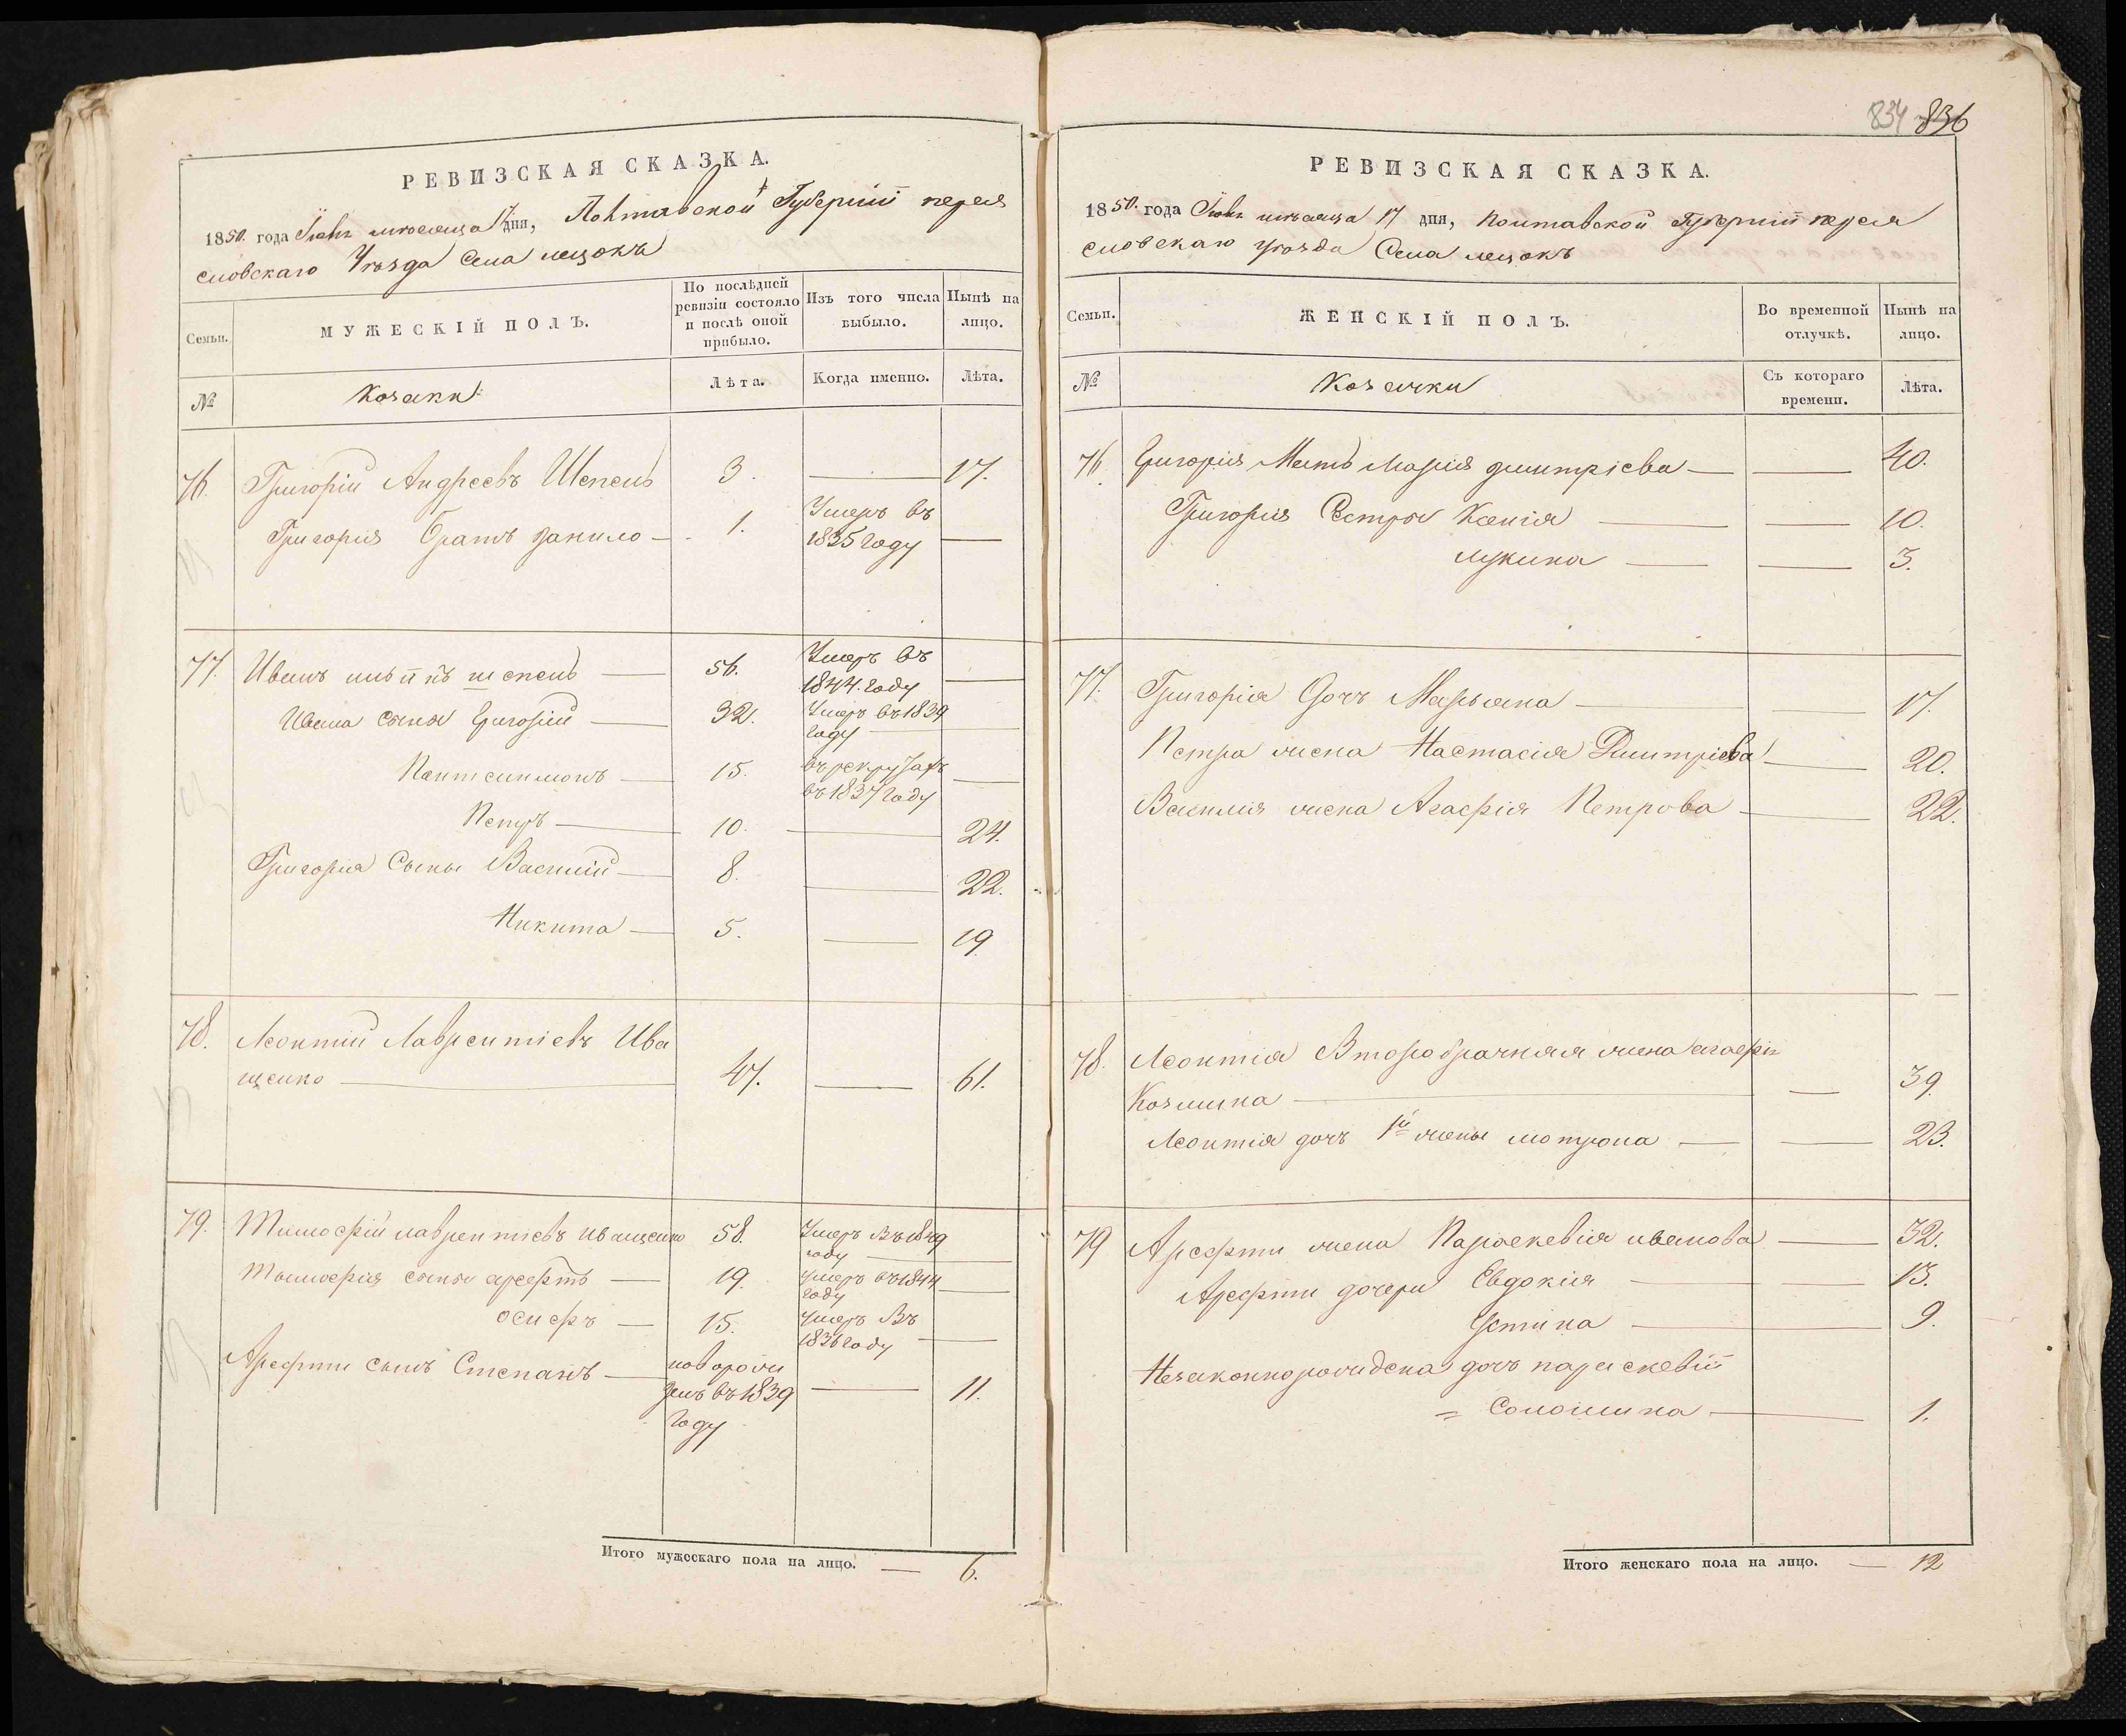 РЕВИЗСКАЯ СКАЗКА.
1850. года Іюня мѣсяца 17 дня, Полтавской Губерніи перея
славскаго Уѣзда Села лецокъ
Семьи.
МУЖЕСКІЙ ПОЛЪ.
По послѣдней ревизіи состояло и послѣ оной прибыло.
Изъ того числа выбыло.
Нынѣ на лицо.
№
Козаки
Лѣта.
Когда именно.
Лѣта.
76. Григорій Андреевъ Шепель 3. 17.
Григорія братъ данило 1. Умеръ въ
1835 году
77. Иванъ шепель 56. Умеръ въ
1844. году
Ивана сыны Григорій 32. Умеръ въ 1839
году
Пантелимонъ 15. въ рекрутахъ
въ 1837 году
Петръ 10. 24.
Григорія Сыны Василій 8. 22.
Никита 5. 19
78. Леонтій Лаврентіевъ Ива
щенко 47. 61.
79. Тимофій лаврентіевъ иващенко 58. Умеръ Въ 1849
году
Тимофія сыны арефтъ 19. умеръ въ 1844
году
осифъ 15. умеръ Въ
1836 году
Арефти сынъ Степанъ новорож
денъ въ 1839 11.
году
Итого мужескаго пола на лицо. 6.
834 836
РЕВИЗСКАЯ СКАЗКА.
1850. года Іюня мѣсяца 17 дня, Полтавской Губерніи перея
славскаго уѣзда Села лецокъ
Семьи.
ЖЕНСКІЙ ПОЛЪ.
Во временной отлучкѣ.
Нынѣ на лицо.
№
Козачки
Съ котораго времени.
Лѣта.
76. Григорія Мать Марія дмитріева 40.
Григорія Сестры Ксенія 10.
лукина 3.
77. Григорія Дочь Марьяна 17.
Петра жена Настасія Дмитріева 20.
Василія жена Агафія Петрова 22.
78. Леонтія Второбрачная жена агафія
Козмина 39.
Леонтія дочь 1й жены мотрона 23.
79 Арефти жена Параскевія иванова 32.
Арефти дочери Евдокія 13.
Устина 9.
Незаконнорожденa дочь параскевіи
= Соломина 1.
Итого женскаго пола на лицо. 12